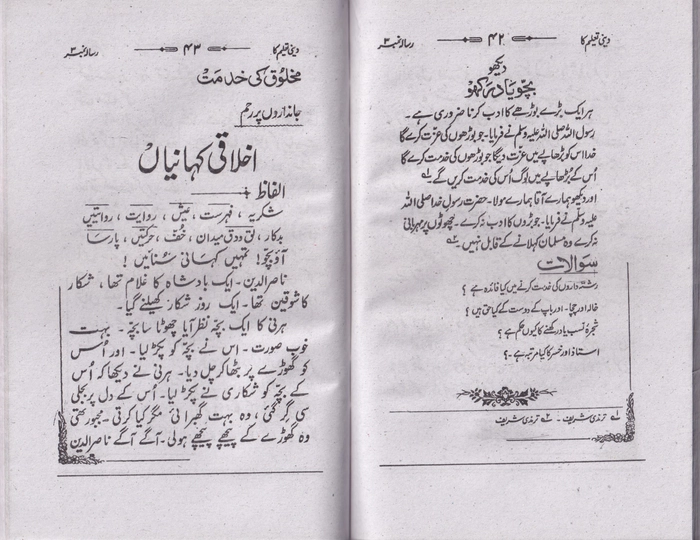 دینی تعلیم کا ۴۲ رسالہ نمبر ۳
دیکھو
بچّو یاد رکھو
ہر ایک بڑے بوڑھے کا ادب کرنا ضروری ہے۔
رسول اللہ صلی اللہ علیہ وسلم نے فرمایا۔ جو بوڑھوں کی عزت کرے گا
خدا اس کو بڑھاپے میں عزت دیگا جو بوڑھوں کی خدمت کرے گا
اُس کے بڑھاپے میں لوگ اُس کی خدمت کریں گے۔ ۱ـ
اور دیکھو ہمارے آقا ہمارے مولا۔ حضرت رسول خدا صلی اللہ
علیہ وسلّم نے فرمایا۔ جو بڑوں کا ادب نہ کرے۔ چھوٹوں پر مہربانی
نہ کرے وہ مسلمان کہلانے کے قابل نہیں۔ ۲ـ
سوالات
رشتہ داروں کی خدمت کرنے میں کیا فائدہ ہے ؟
خالہ اور چچا۔ اور باپ کے دوست کے کیا حق ہیں ؟
شجرۂ نسب یاد رکھنے کا کیوں حکم ہے ؟
استاذ اور خسر کا کیا مرتبہ ہے۔ ؟
۱ـ ترمذی شریف۔ ۲ـ ترمذی شریف
دینی تعلیم کا ۴۳ رسالہ نمبر ۳
مخلوق کی خدمت
جانداروں پر رحم
اخلاقی کہانیاں
الفاظ
شکریہ ، فہرست ، عیش ، روایت ، روایتیں
بدکار، لق ودق میدان ، خُف ، حرکتیں ، پارسا
آؤ بچّو! تمہیں کہانی سُنائیں !
ناصرالدین۔ ایک بادشاہ کا غلام تھا ، شکار
کا شوقین تھا۔ ایک روز شکار کھیلنے گیا۔
ہرنی کا ایک بچّہ نظر آیا چھوٹا سا بچّہ۔ بہت
خوب صورت۔ اس نے بچّہ کو پکڑ لیا۔ اور اُس
کو گھوڑے پر بٹھا کر چل دیا۔ ہرنی نے دیکھا کہ اُس
کے بچّہ کو شکاری نے پکڑ لیا۔ اُس کے دل پر بجلی
سی گر گئی، وہ بہت گھبرائی مگر کیا کرتی۔ مجبور تھی
وہ گھوڑے کے پیچھے پیچھے ہولی۔ آگے آگے ناصرالدین